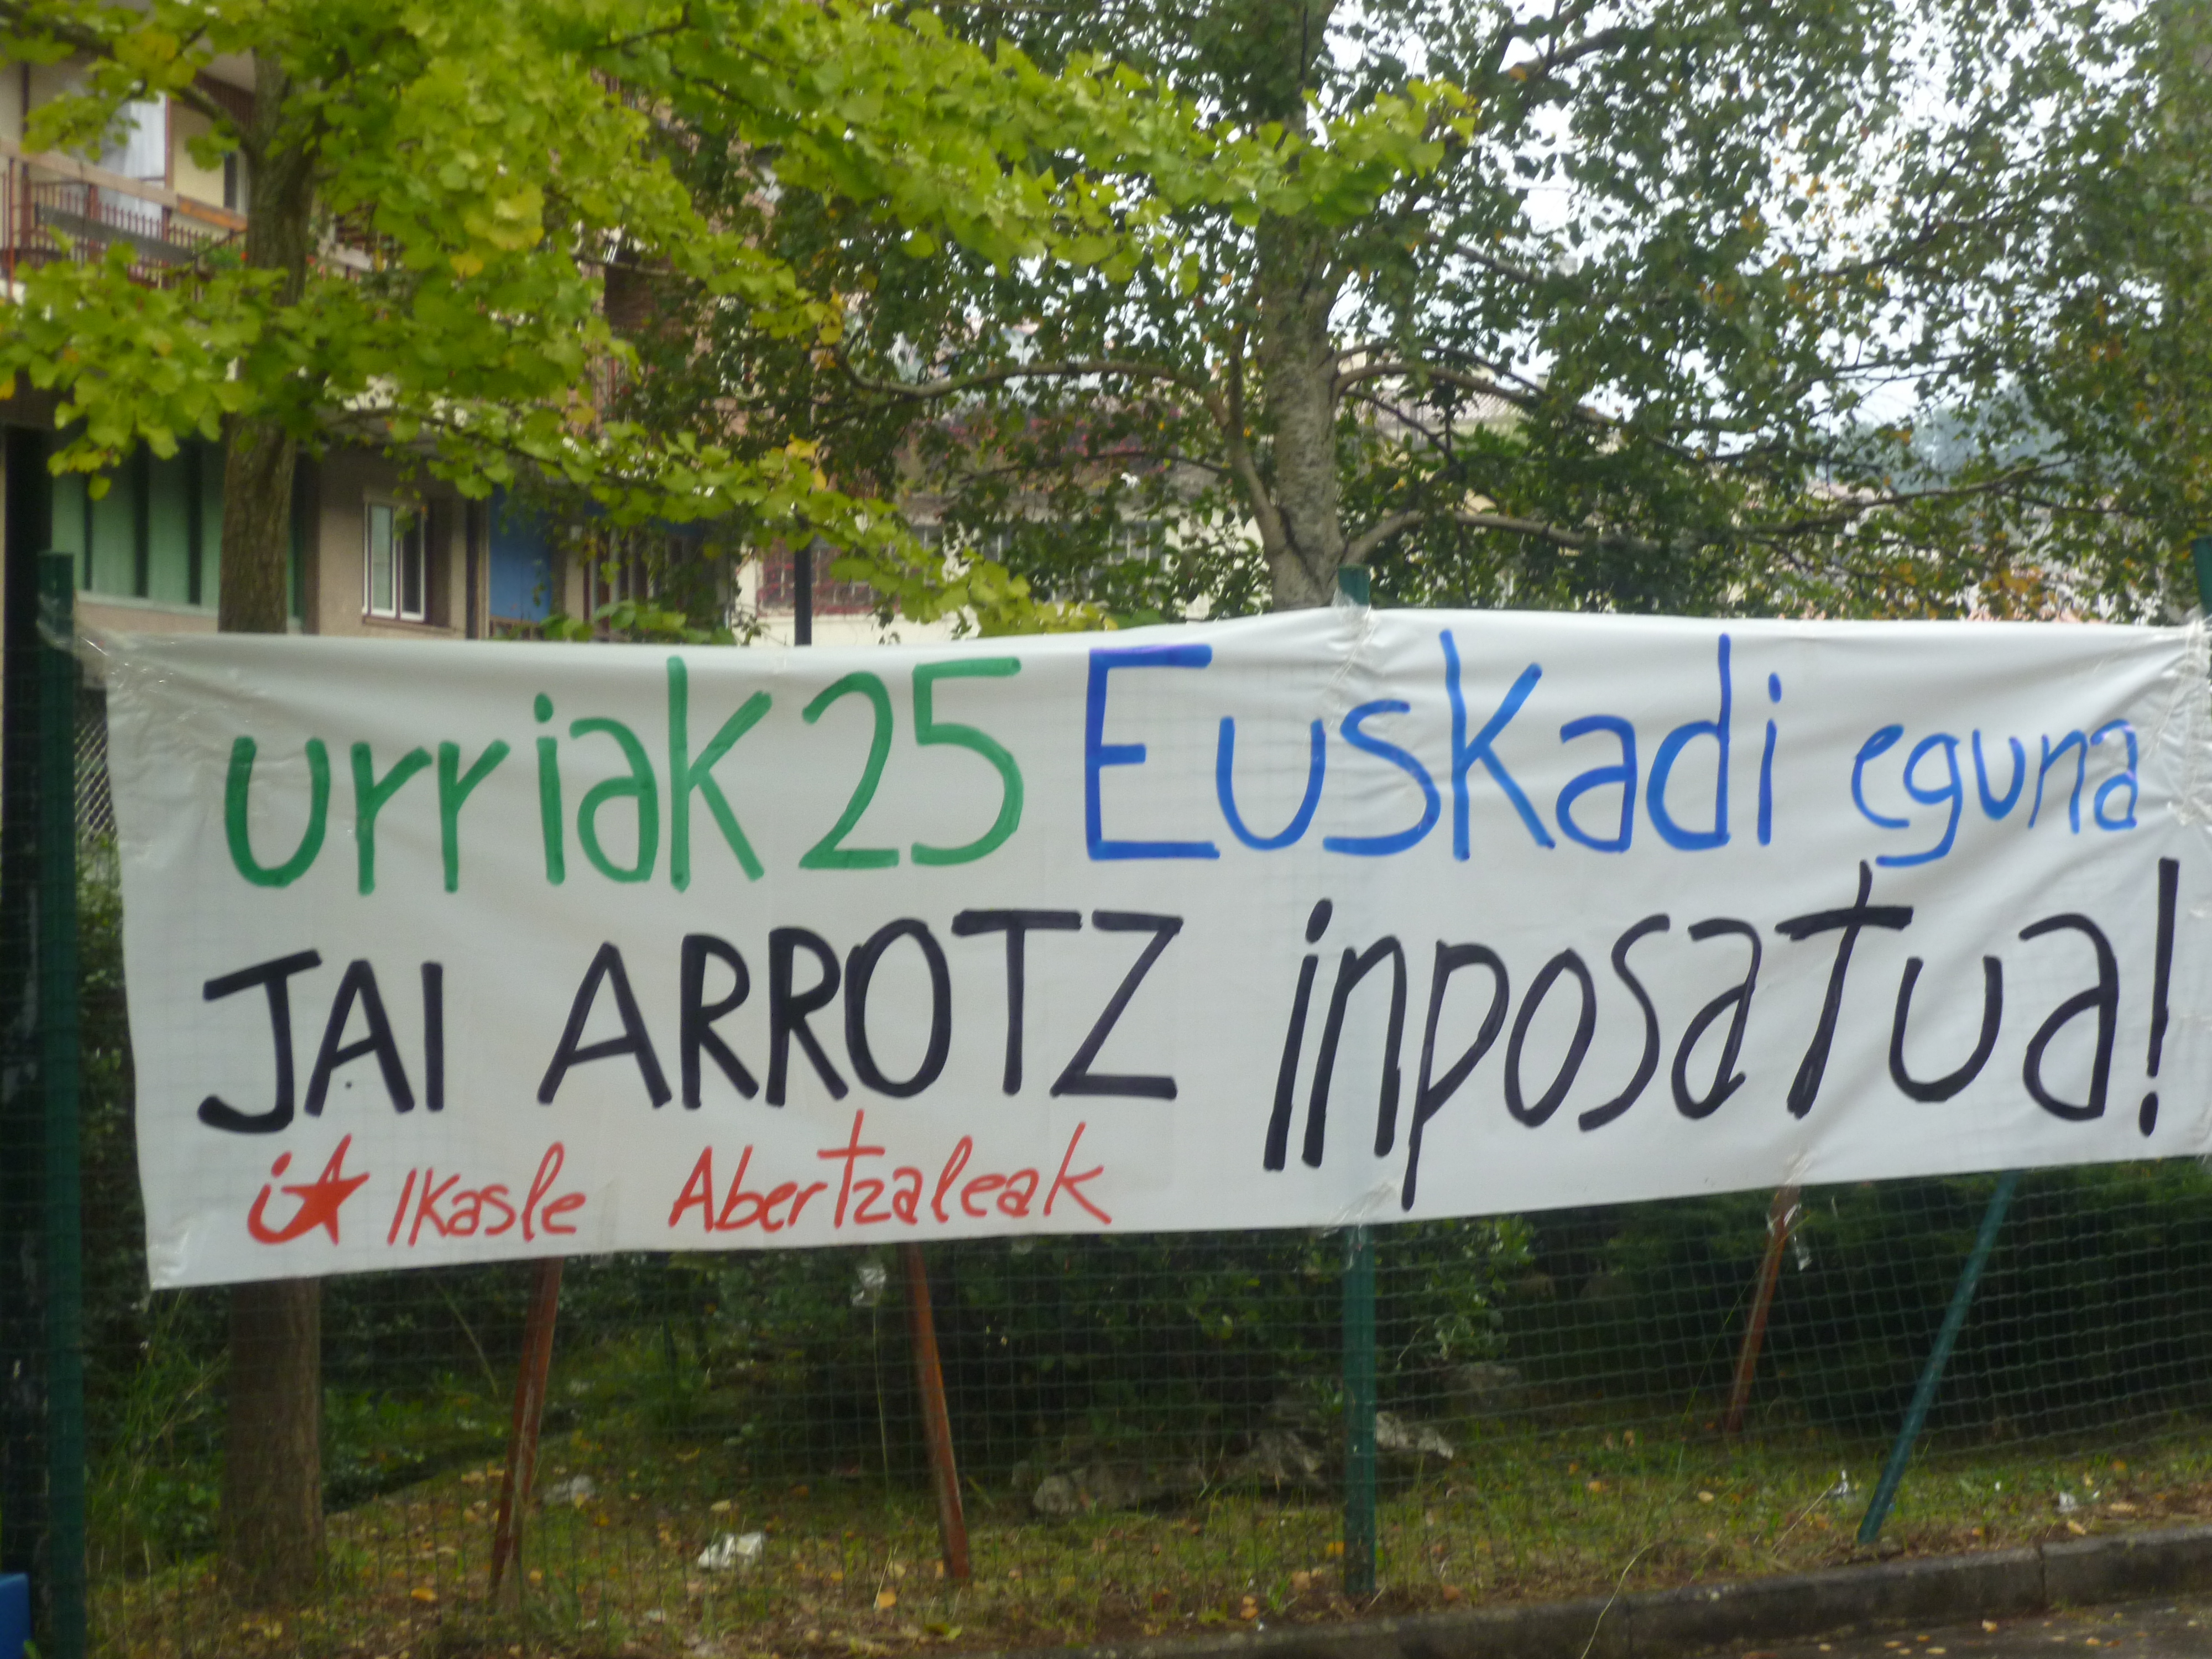 urriak 25 Euskadi eguna
JAI ARROTZ inposatua!
ia Ikasle Abertzaleak